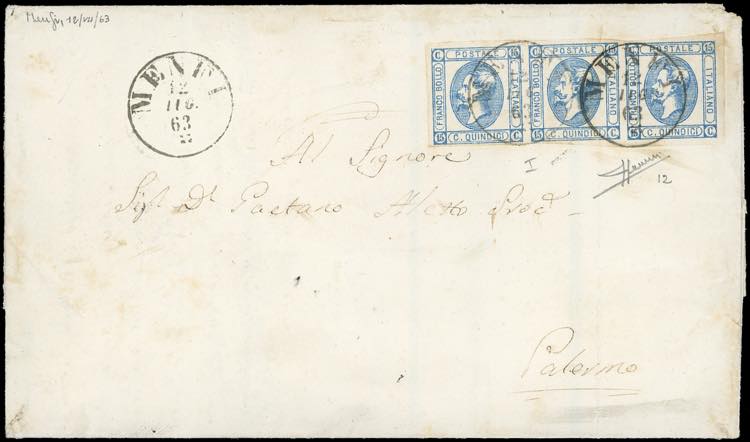 Menfi, 12/VII/63
MENFI
12
LUG.
63
C. POSTALE 15
FRANCO BOLLO
ITALIANO
15 C. QUINDICI C.
C. POSTALE 15
FRANCO BOLLO
ITALIANO
15 C. QUINDICI C.
C. POSTALE 15
FRANCO BOLLO
ITALIANO
15 C. QUINDICI C.
MENFI
12
LUG.
63
I
12
Al Signore
Sig. Dr. Gaetano
Palermo